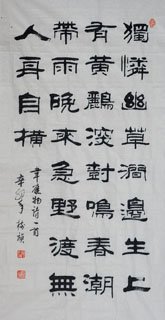 獨憐幽草澗邊生上
有黃鸝深樹鳴春潮
帶雨晚來急野渡無
人舟自橫
韋應物詩一首
辛卯年